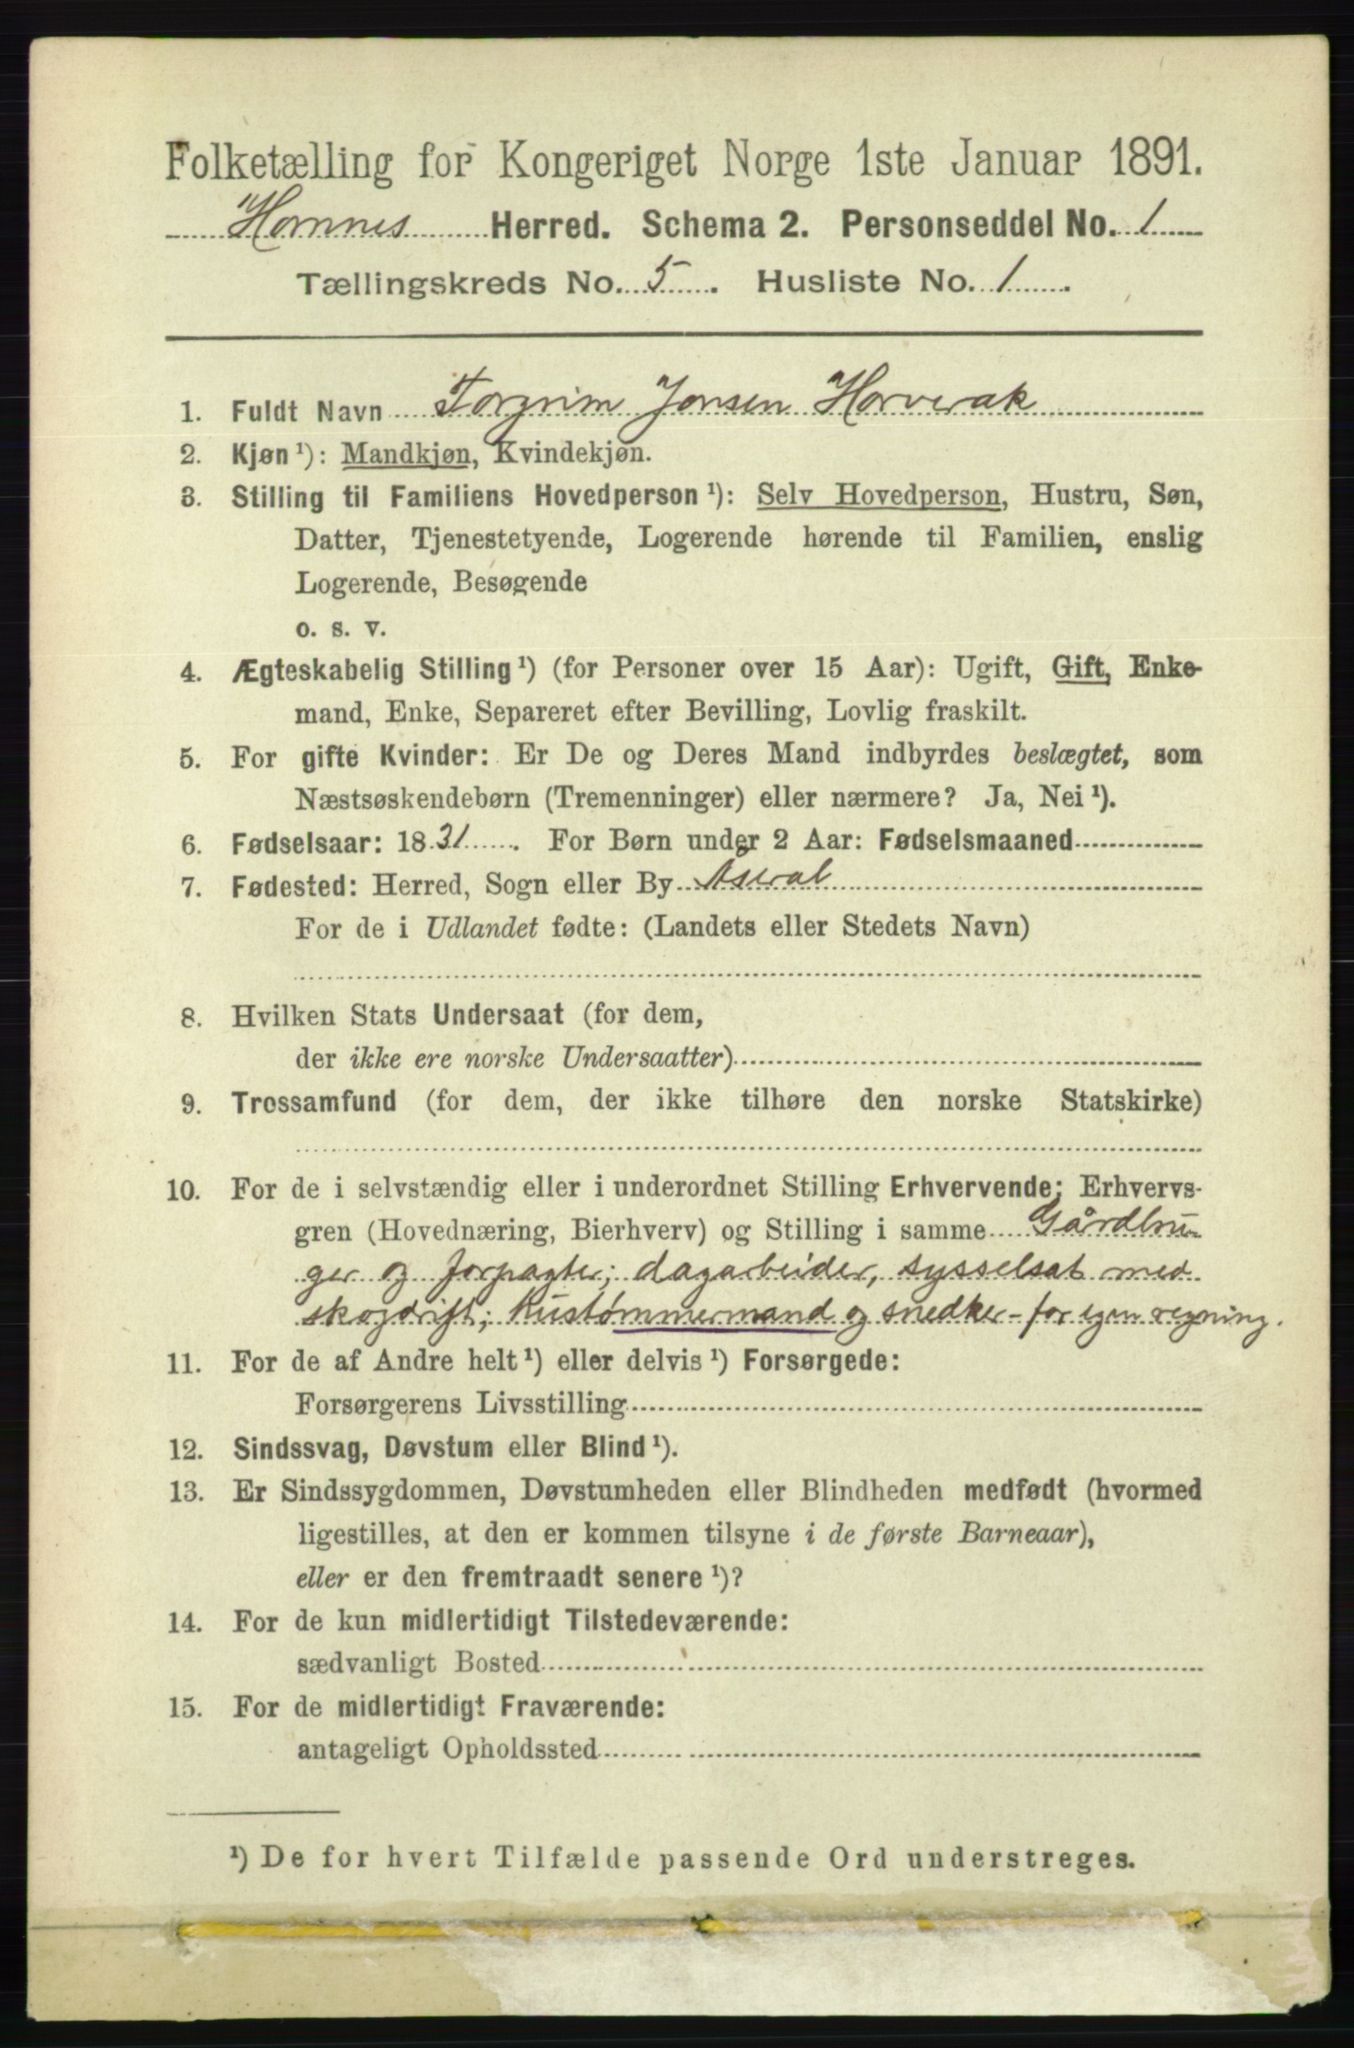 Folketælling for Kongeriget Norge 1ste Januar 1891.
Hornnes Herred. Schema 2. Personseddel No. 1
Tællingskreds No. 5. Husliste No. 1.
1. Fuldt Navn Torgrim Jonsen Horverak
2. Kjøn ¹): Mandkjøn, Kvindekjøn.
3. Stilling til Familiens Hovedperson ¹): Selv Hovedperson, Hustru, Søn,
Datter, Tjenestetyende, Logerende hørende til Familien, enslig
Logerende, Besøgende
o. s. v.
4. Ægteskabelig Stilling ¹) (for Personer over 15 Aar): Ugift, Gift, Enke-
mand, Enke, Separeret efter Bevilling, Lovlig fraskilt.
5. For gifte Kvinder: Er De og Deres Mand indbyrdes beslægtet, som
Næstsøskendebørn (Tremenninger) eller nærmere? Ja, Nei ¹).
6. Fødselsaar: 1831. For Børn under 2 Aar: Fødselsmaaned
7. Fødested: Herred, Sogn eller By Åseral
For de i Udlandet fødte: (Landets eller Stedets Navn)
8. Hvilken Stats Undersaat (for dem,
der ikke ere norske Undersaatter)
9. Trossamfund (for dem, der ikke tilhøre den norske Statskirke)
10. For de i selvstændig eller i underordnet Stilling Erhvervende: Erhvervs-
gren (Hovednæring, Bierhverv) og Stilling i samme Gårdbru-
ger og forpagter; dagarbeider, sysselsat med
skogdrift; Hustømmermand og snedker - for egen regning.
11. For de af Andre helt ¹) eller delvis ¹) Forsørgede:
Forsørgerens Livsstilling
12. Sindssvag, Døvstum eller Blind ¹).
13. Er Sindssygdommen, Døvstumheden eller Blindheden medfødt (hvormed
ligestilles, at den er kommen tilsyne i de første Barneaar),
eller er den fremtraadt senere ¹)?
14. For de kun midlertidigt Tilstedeværende:
sædvanligt Bosted
15. For de midlertidigt Fraværende:
antageligt Opholdssted
¹) De for hvert Tilfælde passende Ord understreges.